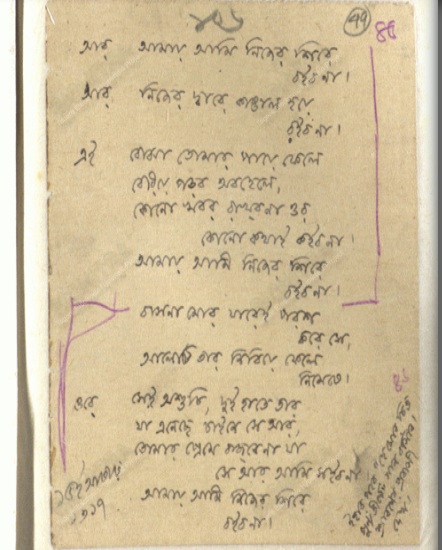 ৭৭
৪৫
আর আমায় আমি নিজের শিরে
বইব না।
আর নিজের দ্বারে কাঙাল হয়ে
রইব না।
এই বোঝা তোমার পায়ে ফেলে
বেরিয়ে পড়ব অবহেলে,
কোনো খবর রাখব না ওর
কোনো কথাই কইব না।
আমায় আমি নিজের শিরে
বইব না।
বাসনা মোর যারেই পরশ
করে সে,
আলোটি তার নিবিয়ে ফেলে
নিমেষে।
ওরে সেই অশুচি, দুই হাতে তার
যা এনেছে চাইনে সে আর,
তোমার প্রেমে বাজবে না যা
সে আর আমি সইব না
আমায় আমি নিজের শিরে
বইব না।
১৩১৭